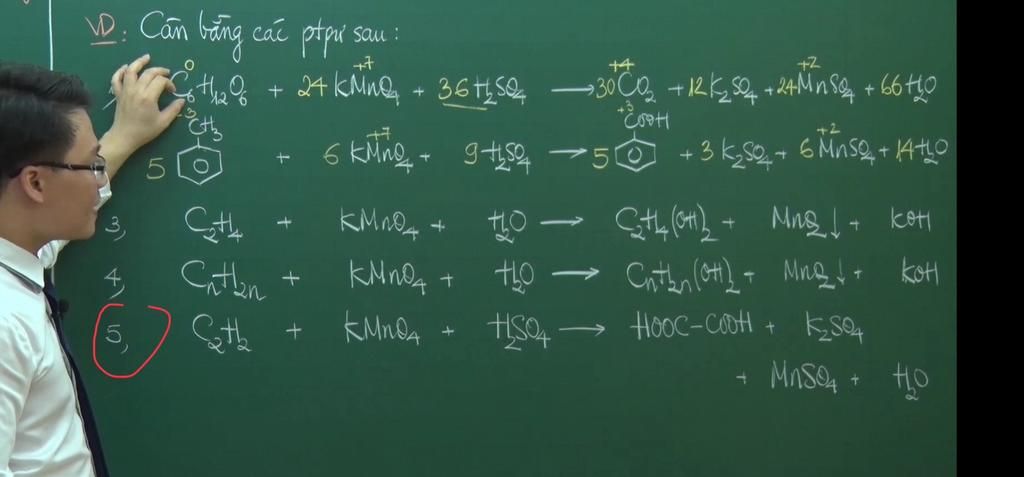 VD: Cân bằng các ptpư sau:
0 +7 +4 +2
C₆H₁₂O₆ + 24 KMnO₄ + 36 H₂SO₄ → 30 CO₂ + 12 K₂SO₄ + 24 MnSO₄ + 66 H₂O
-3 +3
CH₃ COOH
+7 +2
5 + 6 KMnO₄ + 9 H₂SO₄ → 5 + 3 K₂SO₄ + 6 MnSO₄ + 14 H₂O
3, C₂H₄ + KMnO₄ + H₂O → C₂H₄(OH)₂ + MnO₂↓ + KOH
4, CₙH₂ₙ + KMnO₄ + H₂O → CₙH₂ₙ(OH)₂ + MnO₂↓ + KOH
5, C₂H₂ + KMnO₄ + H₂SO₄ → HOOC-COOH + K₂SO₄
+ MnSO₄ + H₂O